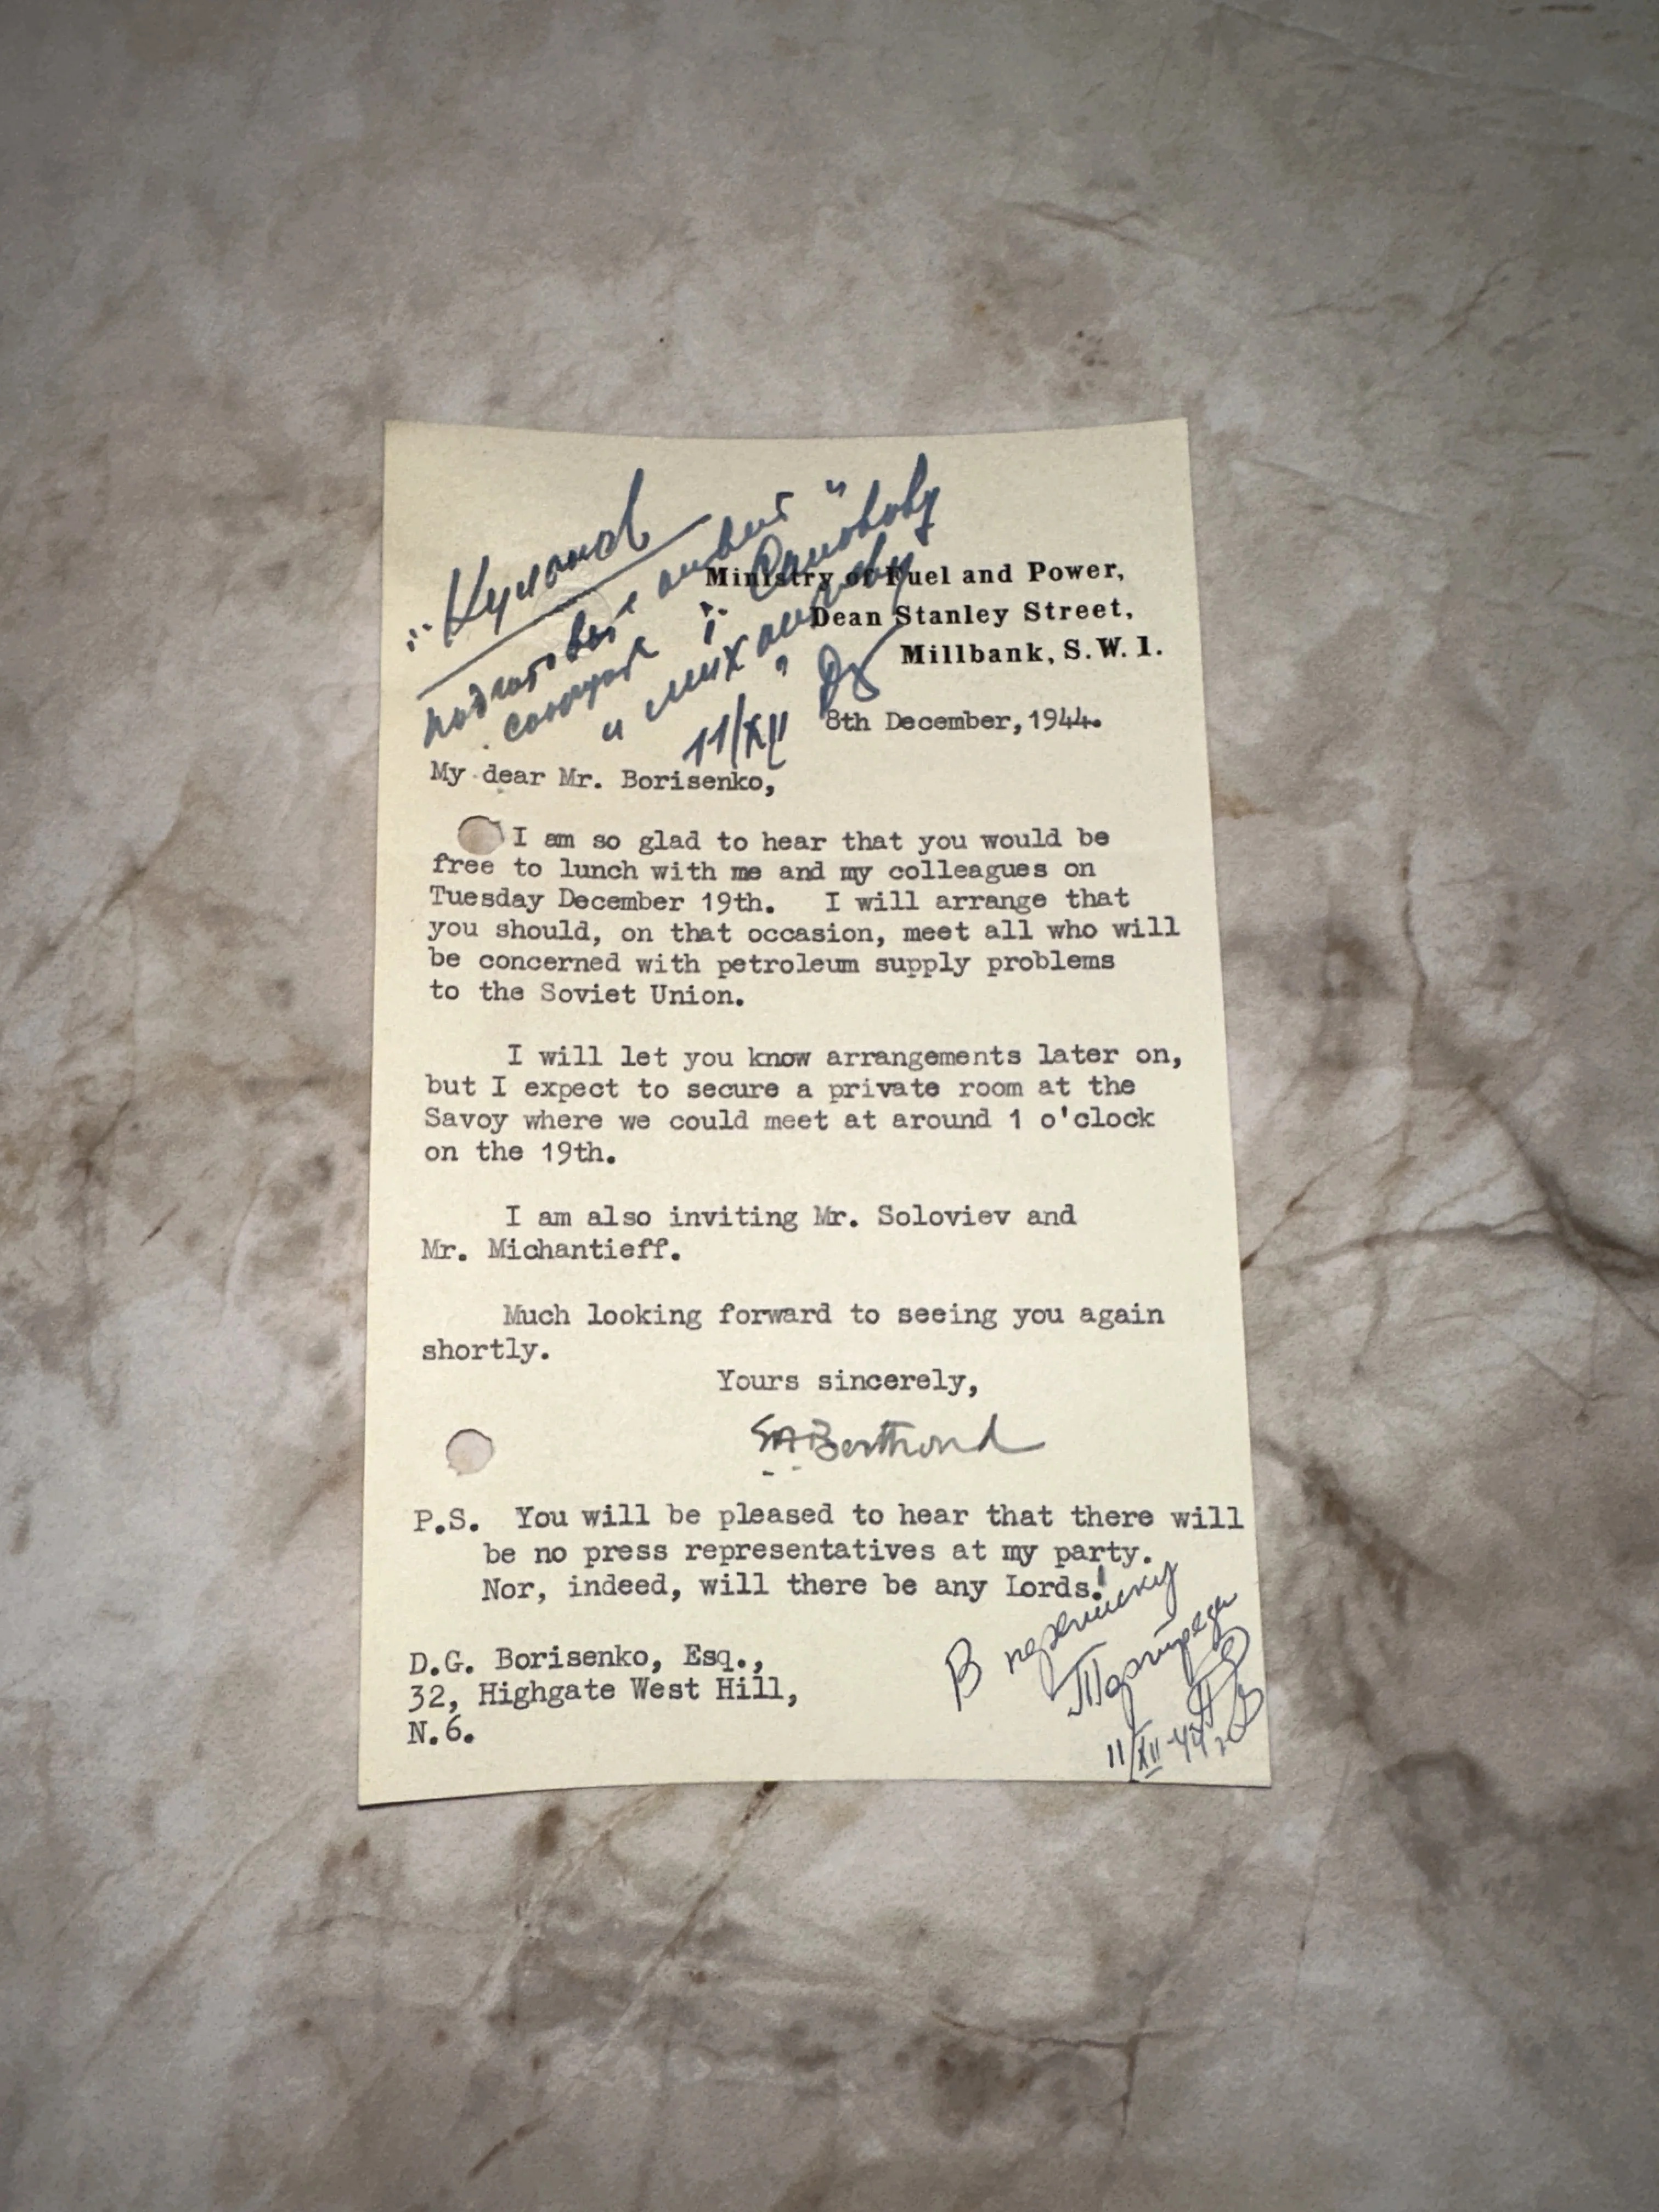 подготовьте ответ
сообщите т. Соловьеву
и Михантьеву
11/XII
Ministry of Fuel and Power,
Dean Stanley Street,
Millbank, S.W.1.
8th December, 1944.
My dear Mr. Borisenko,
I am so glad to hear that you would be
free to lunch with me and my colleagues on
Tuesday December 19th. I will arrange that
you should, on that occasion, meet all who will
be concerned with petroleum supply problems
to the Soviet Union.
I will let you know arrangements later on,
but I expect to secure a private room at the
Savoy where we could meet at around 1 o'clock
on the 19th.
I am also inviting Mr. Soloviev and
Mr. Michantieff.
Much looking forward to seeing you again
shortly.
Yours sincerely,
P.S. You will be pleased to hear that there will
be no press representatives at my party.
Nor, indeed, will there be any Lords!
В переписку
Торгпреда
11/XII-44г
D.G. Borisenko, Esq.,
32, Highgate West Hill,
N.6.